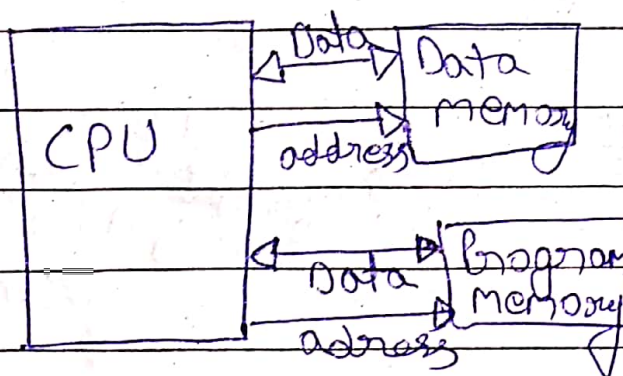 Data
Data
memory
CPU
address
Data
Program
memory
adress